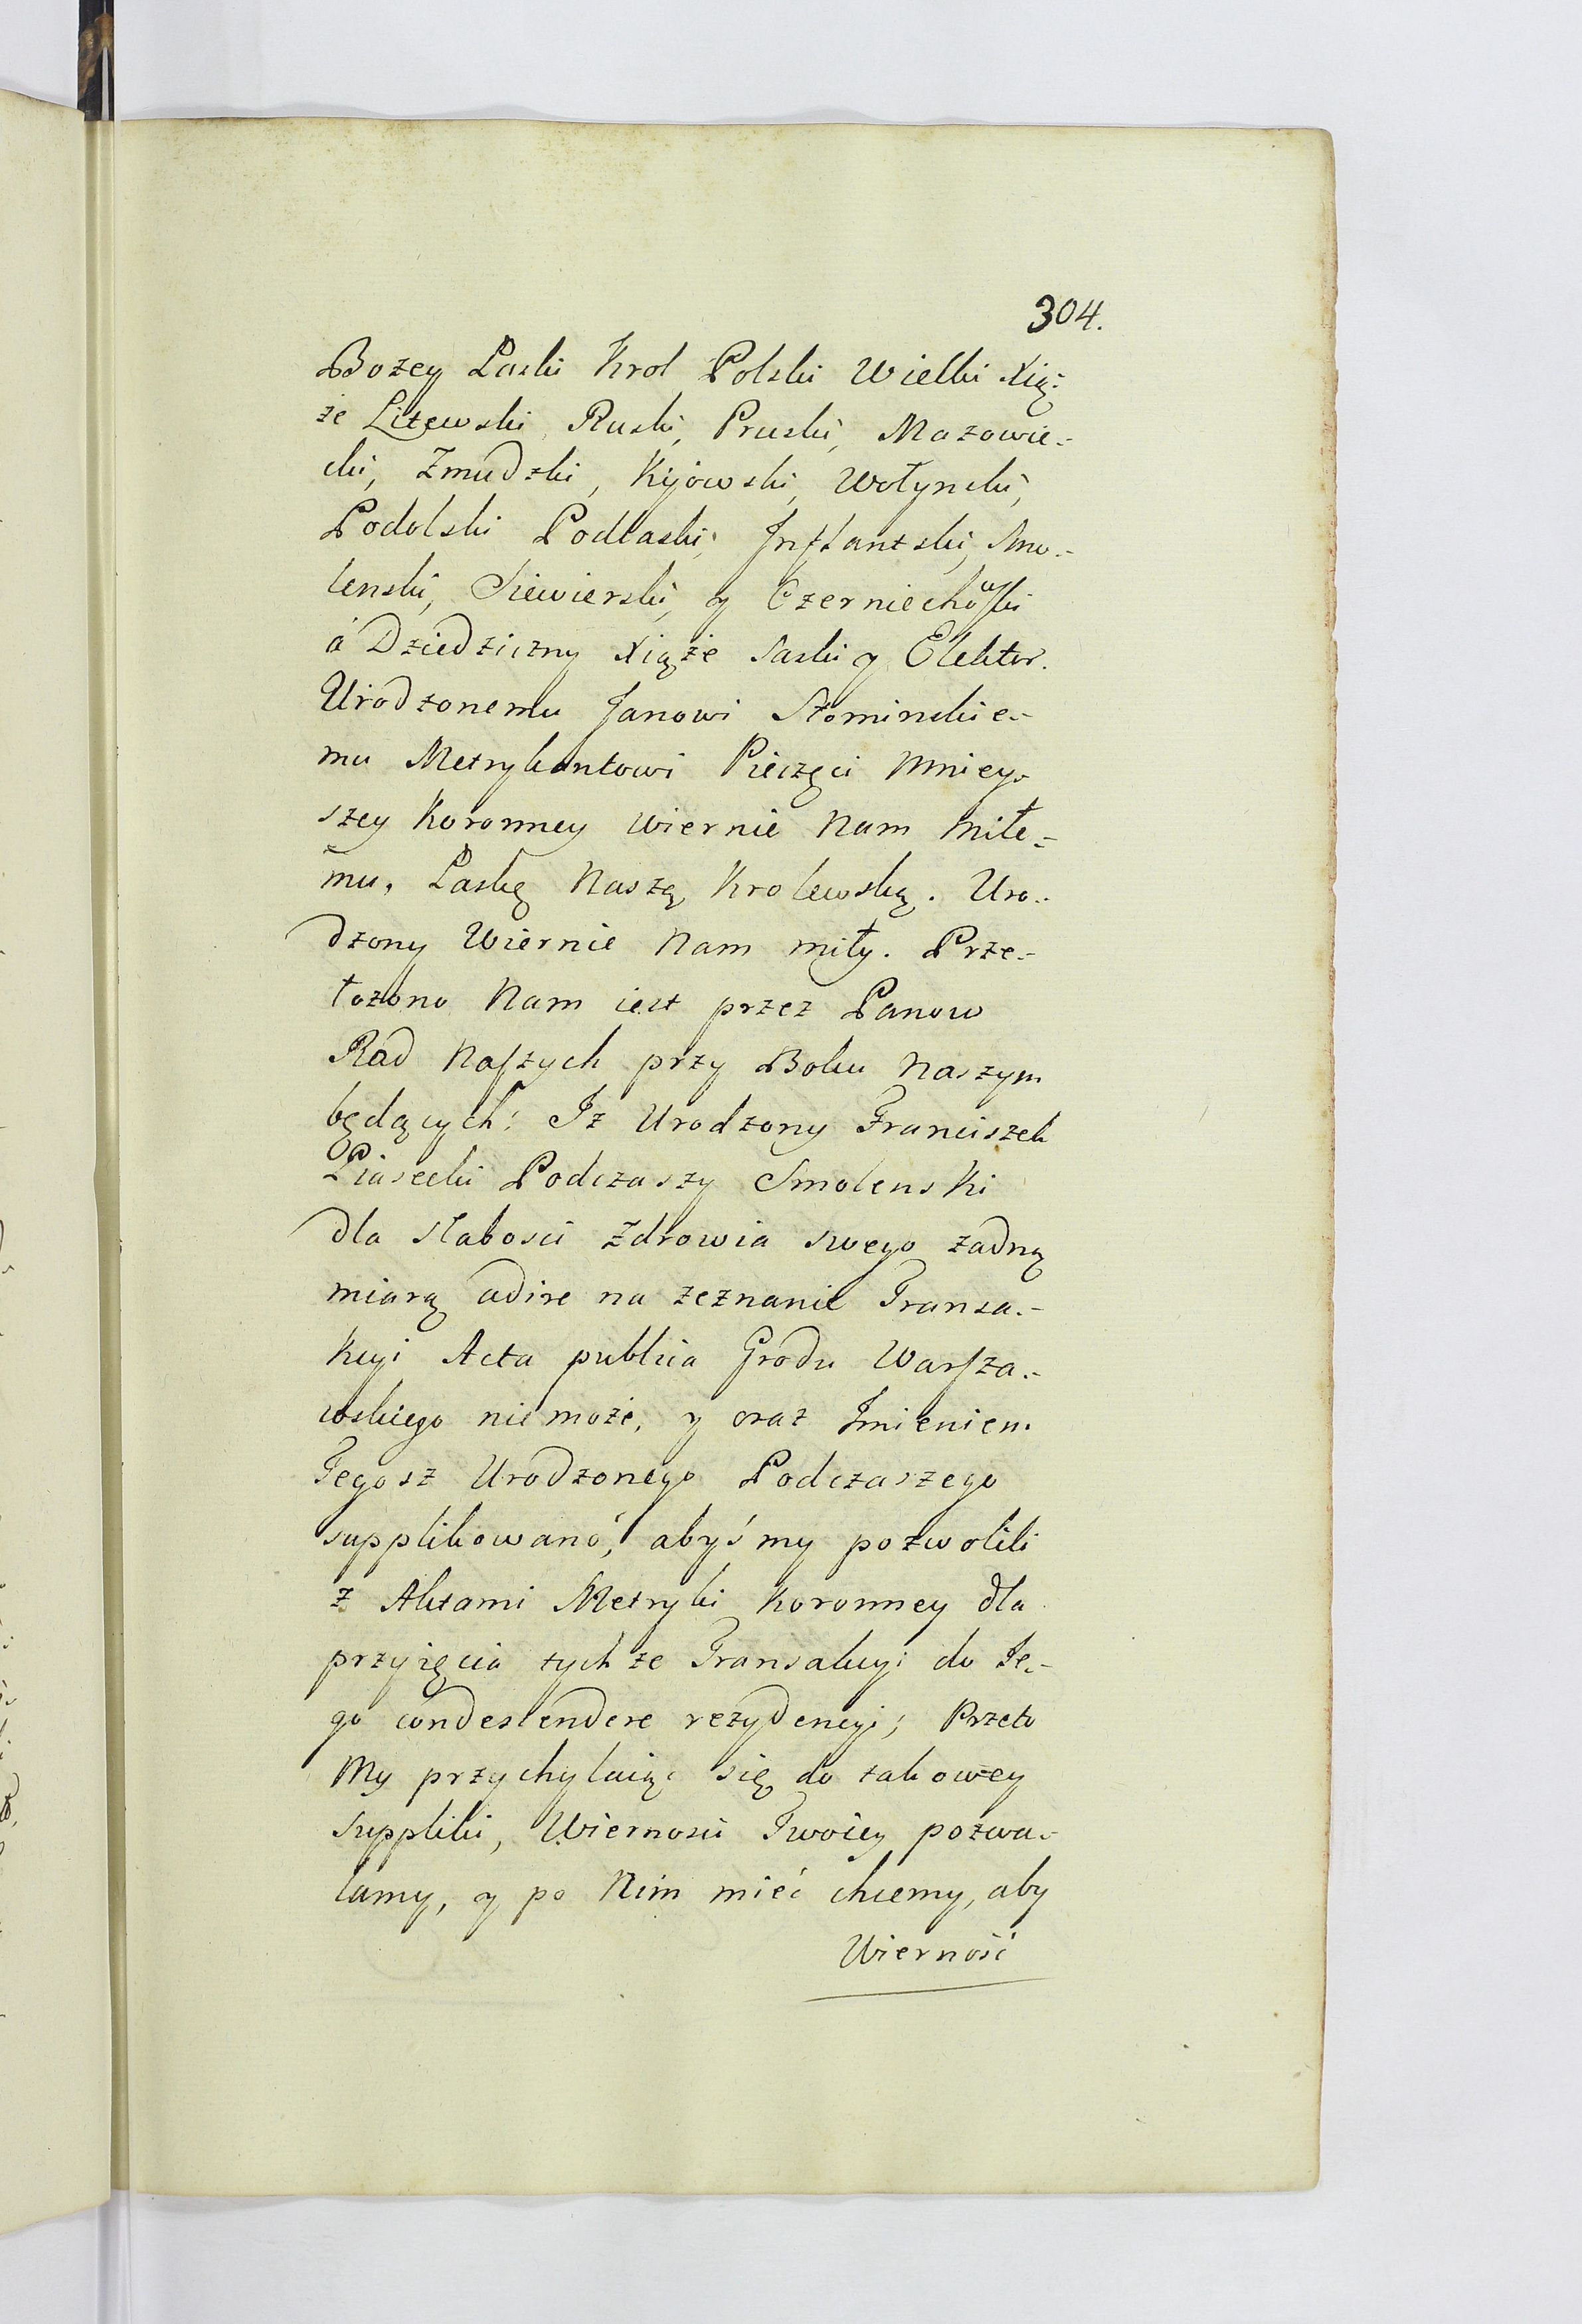 304.
Bozey Laski Krol Polski Wielki Xią-
że Litewski, Ruski, Pruski, Mazowie-
cki, Zmudzki, Kijowski, Wołynski,
Podolski Podlaski, Inflantski, Smo-
lenski, Siewierski, y Czerniechowski
á Dziedziczny Xiąże Saski y Elektor.
Urodzonemu Janowi Słominskie-
mu Metrykantowi Pieczęci Mniey-
szey Koronney wiernie Nam miłe-
mu, Laskę Naszą Krolewską. Uro-
dzony Wiernie Nam miły. Prze-
łozono Nam iest przez Panow
Rad Naszych przy Boku Naszym
będących: Iz Urodzony Franciszek
Piasecki Podczaszy Smolenski
dla słabosci Zdrowia swego zadną
miarą adire na zeznanie Transa-
kcyi Acta publica Grodu Warsza-
wskiego nie może, y oraz Imieniem
Tegosz Urodzonego Podczaszego
supplikowanó, abyśmy pozwolili
z Aktami Metryki Koronney dla
przyięcia tychze Transakcyi do Je-
go condescendere rezydencyi; Przeto
My przychylaiąc się do takowey
Suppliki, Wiernosci Twoiey pozwa-
lamy, y po Nim mieć chcemy, aby
Wierność